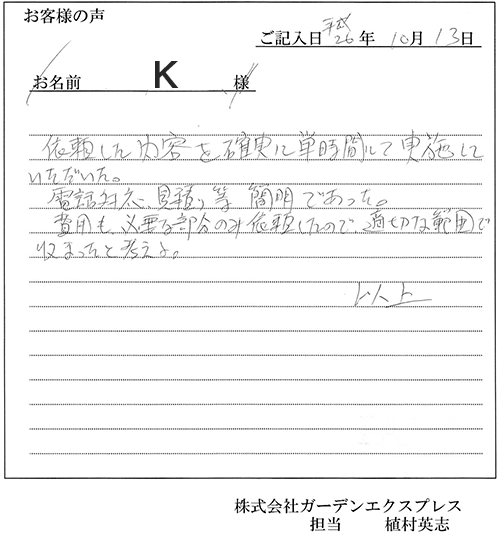 お客様の声
ご記入日 平成26年 10月 13日
お名前 K 様
依頼した内容を確実に単時間にて実施して
いただいた。
電話対応、見積り等 簡明であった。
費用も、必要な部分のみ依頼したので適切な範囲で
収まったと考えよ。
以上
株式会社ガーデンエクスプレス
担当 植村英志